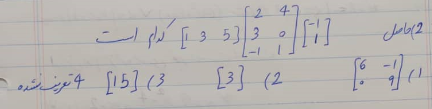 2) حاصل [1 3 5] [2 4 / 3 0 / -1 1] [-1 / 1] کدام است
1) [6 -1 / 0 9] 2) [3] 3) [15] 4 تعریف نشده